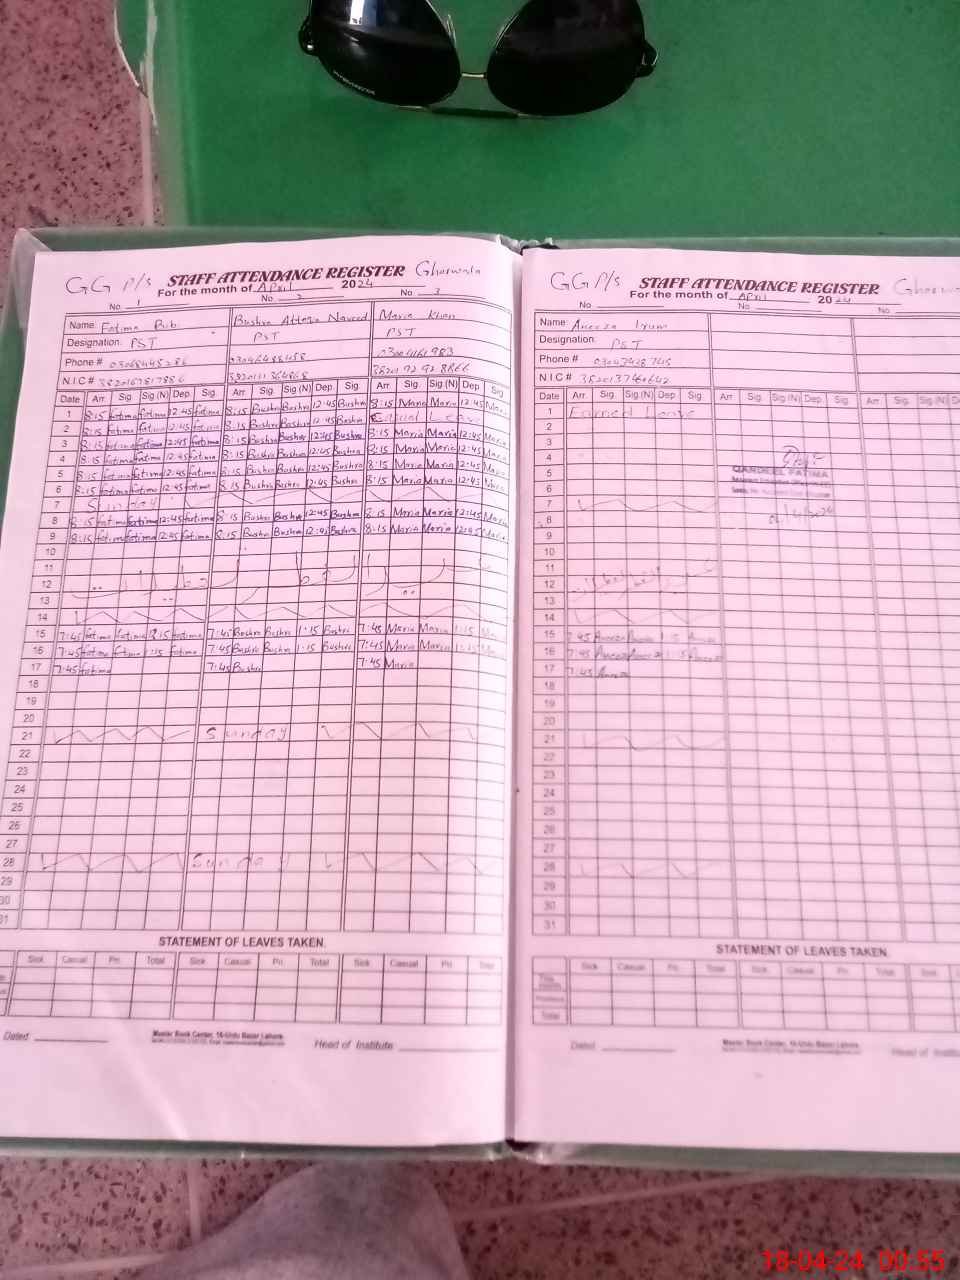 GG P/S STAFF ATTENDANCE REGISTER Ghorwala
For the month of April 2024
No 1 No 2 No 3
Name: Fatima Bushra Naveed Maria Khan
Designation: PST PST PST
Phone #
N.I.C #
Date Arr Sig Sig (N) Dep Sig. Arr Sig Sig (N) Dep Sig. Arr Sig. Sig (N) Dep. Sig
1 8:15 fatima fatima 12:45 fatima 8:15 Bushra Bushra 12:45 Bushra 8:15 Maria Maria 12:45 Maria
2 8:15 fatima fatima 12:45 fatima 8:15 Bushra Bushra 12:45 Bushra Casual Leave
3 8:15 fatima fatima 12:45 fatima 8:15 Bushra Bushra 12:45 Bushra 8:15 Maria Maria 12:45 Maria
4 8:15 fatima fatima 12:45 fatima 8:15 Bushra Bushra 12:45 Bushra 8:15 Maria Maria 12:45 Maria
5 8:15 fatima fatima 12:45 fatima 8:15 Bushra Bushra 12:45 Bushra 8:15 Maria Maria 12:45 Maria
6 8:15 fatima fatima 12:45 fatima 8:15 Bushra Bushra 12:45 Bushra 8:15 Maria Maria 12:45 Maria
7 Sunday
8 8:15 fatima fatima 12:45 fatima 8:15 Bushra Bushra 12:45 Bushra 8:15 Maria Maria 12:45 Maria
9 8:15 fatima fatima 12:45 fatima 8:15 Bushra Bushra 12:45 Bushra 8:15 Maria Maria 12:45 Maria
10
11
12
13
14
15 7:45 fatima fatima 1:15 fatima 7:45 Bushra Bushra 1:15 Bushra 7:45 Maria Maria 1:15 Maria
16 7:45 fatima fatima 1:15 fatima 7:45 Bushra Bushra 1:15 Bushra 7:45 Maria Maria 1:15 Maria
17 7:45 fatima 7:45 Bushra 7:45 Maria
18
19
20
21 Sunday
22
23
24
25
26
27
28 Sunday
29
30
31
STATEMENT OF LEAVES TAKEN.
Sick Casual Pri. Total Sick Casual Pri. Total Sick Casual Pri. Total
Dated
Master Book Center, 16-Urdu Bazar Lahore.
Head of Institute
GG P/S STAFF ATTENDANCE REGISTER
For the month of April 2024
No No No
Name: Aneeza Irum
Designation: PST
Phone #
N.I.C #
Date Arr Sig. Sig (N) Dep Sig. Arr Sig. Sig.(N) Dep. Sig Arr Sig. Sig (N)
1 Earned Leave
2
3
4
5 QANDEEL FATIMA
6
7
8
9
10
11
12
13
14
15 7:45 Aneeza Aneeza 1:15 Aneeza
16 7:45 Aneeza Aneeza 1:15 Aneeza
17 7:45 Aneeza
18
19
20
21
22
23
24
25
26
27
28
29
30
31
STATEMENT OF LEAVES TAKEN.
Sick Casual Pri. Total Sick Casual Pri. Total Sick
Total
Dated
Master Book Center, 16-Urdu Bazar Lahore.
Head of
18-04-24 00:55